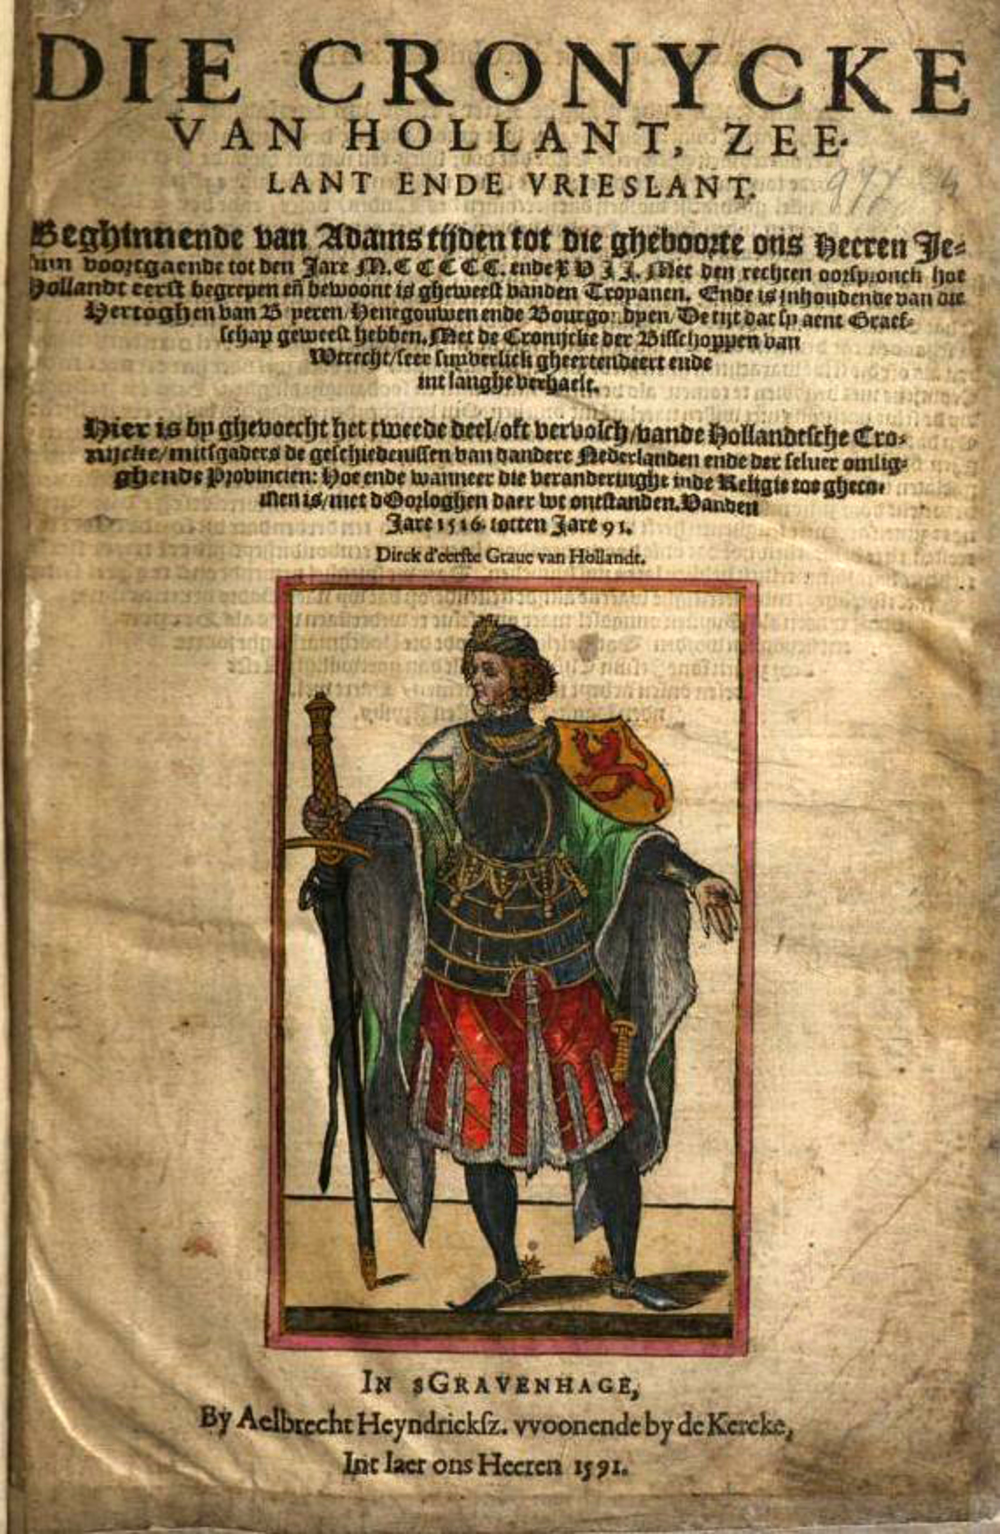 DIE CRONYCKE
VAN HOLLANT, ZEE-
LANT ENDE VRIESLANT.
Beghinnende van Adams tijden tot die gheboorte ons Heeren Je-
sum voortgaende tot den Jare M.CCCCC. ende XVII. Met den rechten oorspronck hoe
Hollandt eerst begrepen eñ bewoont is gheweest vanden Troyanen. Ende is inhoudende van die
Hertoghen van Beyeren/Henegouwen ende Bourgondyen/De tijt dat sy aent Graef-
schap geweest hebben. Met de Cronijcke der Bisschoppen van
Wtrecht/seer suyverlick gheextendeert ende
int langhe verhaelt.
Hier is by ghevoecht het tweede deel/oft vervolch/vande Hollandtsche Cro-
nijcke/mitsgaders de geschiedenissen van dandere Nederlanden ende der selver omlig-
ghende Provincien: Hoe ende wanneer die veranderinghe inde Religie toe gheco-
men is/met d'Oorloghen daer wt ontstanden. Vanden
Jare 1516. totten Jare 91.
Dirck d'eerste Grave van Hollandt.
IN SGRAVENHAGE,
By Aelbrecht Heyndricksz. vvoonende by de Kercke,
Int Iaer ons Heeren 1591.